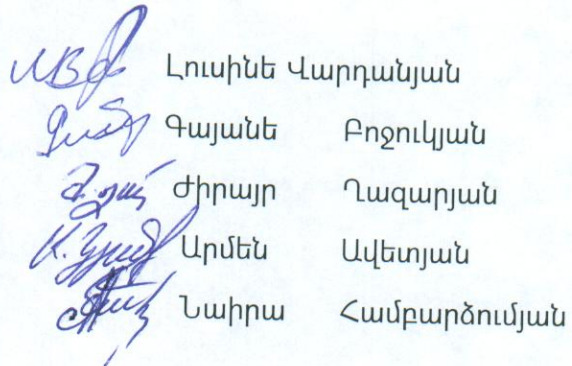 Լուսինե Վարդանյան
Գայանե Բոջուկյան
Ժիրայր Ղազարյան
Արմեն Ավետյան
Նաիրա Համբարձումյան